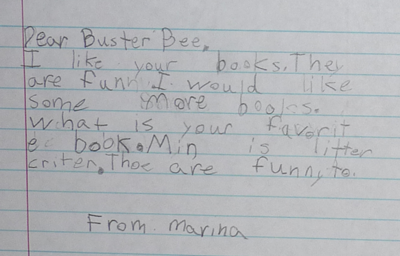 Dear Buster Bee,
I like your books. They
are funn. I would like
some more books.
What is your favorit
e book. Min is litter
criter. Thoe are funny to.
From marina